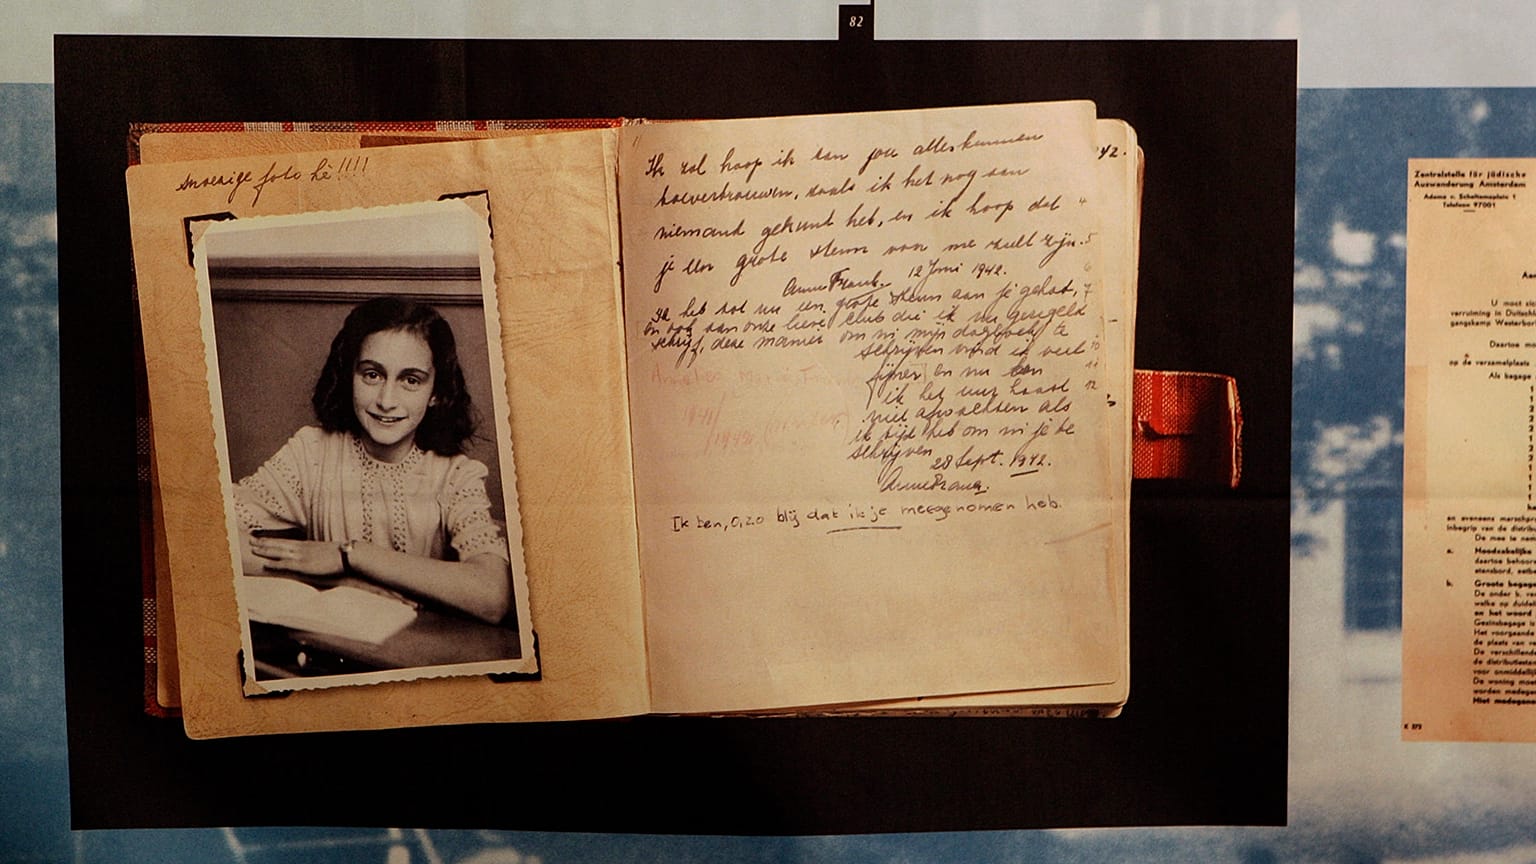 82
snoezige foto hè!!!!
Ik zal hoop ik aan jou alles kunnen
toevertrouwen, zoals ik het nog aan
niemand gekund heb, en ik hoop dat
je een grote steun voor me zult zijn.
Anne Frank. 12 Juni 1942.
Ik heb tot nu een grote steun aan je gehad,
en ook aan onze lieve club die ik nu geregeld
schrijf, deze manier om in mijn dagboek te
schrijven vind ik veel
fijner en nu kan
ik het uur haast
niet afwachten als
ik tijd heb om in je te
schrijven
28 Sept. 1942.
Anne Frank.
Ik ben, o, zo blij dat ik je meegenomen heb.
42.
4
5
6
7
10
11
12
1941/
/1942.
Zentralstelle für jüdische
Auswanderung Amsterdam
Adama v. Scheltemaplein 1
Telefoon 97001
U moet zic
verruiming in Duitschl
gangskamp Westerbor
Daartoe mo
op de verzamelplaats
Als bagage
en eveneens marschpr
inbegrip van de distribu
De mee te nem
a.
Noodzakelijke
daartoe behoore
etensbord, eetbe
b.
Groote bagage
De onder b. ve
welke op duidel
en het woord
Gezinsbagage is
Het voorgaande
de plaats van ve
De verschillende
de distributiestam
voor onmiddellijk
De woning moet
worden medegen
Niet medegenom
K 372